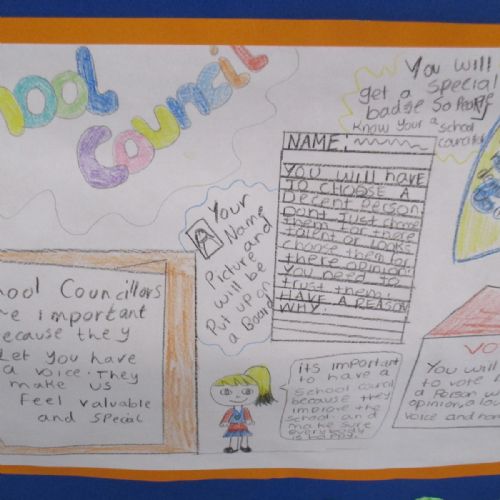 hool
Council
You will
get a special
badge so People
Know your a school
councillor
NAME:
YOU WILL HAVE
TO CHOOSE A
Decent person
Dont Just choose
them for there
talent or Looks
choose them for
there opinion.
You need to
trust them
HAVE A REASON
WHY.
Your
Name
Picture and
will be
Put up on
a Board
hool Councillors
re important
ecause they
Let you have
a voice. They
make us
Feel valuable
and special
its important
to have a
School council
because they
improve the
school and
make sure
everybody
is happy.
VO
You will
to vote
a Person w
opinion, a lou
voice and